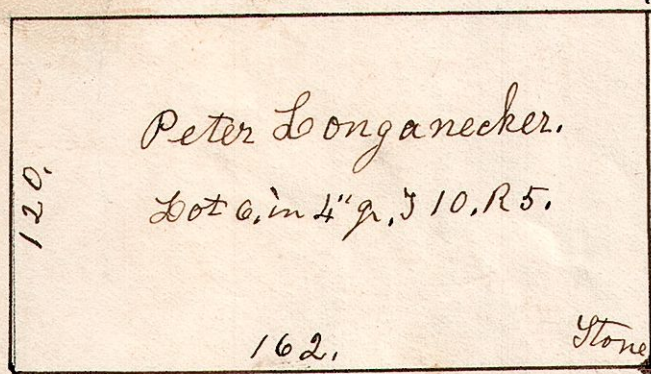 Peter Longanecker.
Lot 6. in 4" qr. T 10. R 5.
120.
162.
Stone